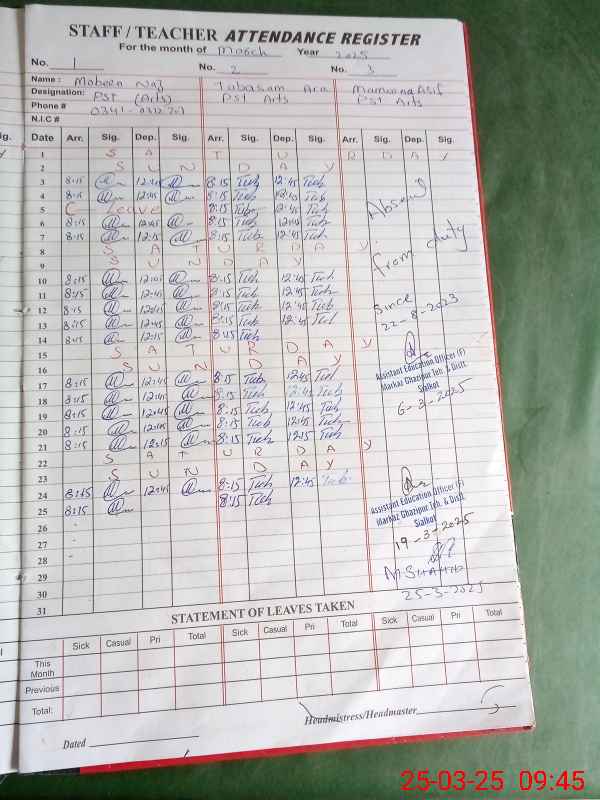 STAFF / TEACHER ATTENDANCE REGISTER
For the month of March Year 2025
No. 1 No. 2 No. 3
Name : Mobeen Naz Tabasam Ara Mamoona Asif
Designation: PST (Arts) PST Arts PST Arts
Phone #
N.I.C #
Date Arr. Sig. Dep. Sig. Arr. Sig. Dep. Sig. Arr. Sig. Dep. Sig.
1 S A T U R D A Y
2 S U N D A Y
3 8:15 12:45 8:15 Tub 12:45 Tub
4 8:15 12:45 8:15 Tub 12:45 Tub
5 C Leave 8:15 Tub 12:45 Tub
6 8:15 12:45 8:15 Tub 12:45 Tub
7 8:15 12:15 8:15 Tub 12:45 Tub
8 S A T U R D A Y
9 S U N D A Y
10 8:15 8:15 Tub 12:45 Tub
11 8:15 12:45 8:15 Tub 12:45 Tub
12 8:15 8:15 Tub 12:45 Tub
13 8:15 12:45 8:15 Tub 12:45 Tub
14 8:15 12:15 8:15 Tub
15 S A T U R D A Y
16 S U N D A Y
17 8:15 12:45 8:15 Tub 12:45 Tub
18 8:15 12:45 8:15 Tub 12:45 Tub
19 8:15 12:45 8:15 Tub 12:45 Tub
20 8:15 8:15 Tub 12:45 Tub
21 8:15 12:15 8:15 Tub 12:15 Tub
22 S A T U R D A Y
23 S U N D A Y
24 8:15 12:45 8:15 Tub 12:45 Tub
25 8:15 8:15 Tub
26
27
28
29
30
31
Absent
from duty
since
22-8-2023
Assistant Education Officer (F)
Markaz Ghazipur Teh. & Distt.
Sialkot
6-3-2025
Assistant Education Officer (F)
Markaz Ghazipur Teh. & Distt.
Sialkot
19-3-2025
25-3-2025
STATEMENT OF LEAVES TAKEN
Sick Casual Pri Total Sick Casual Pri Total Sick Casual Pri Total
This Month
Previous
Total:
Headmistress/Headmaster
Dated
25-03-25 09:45